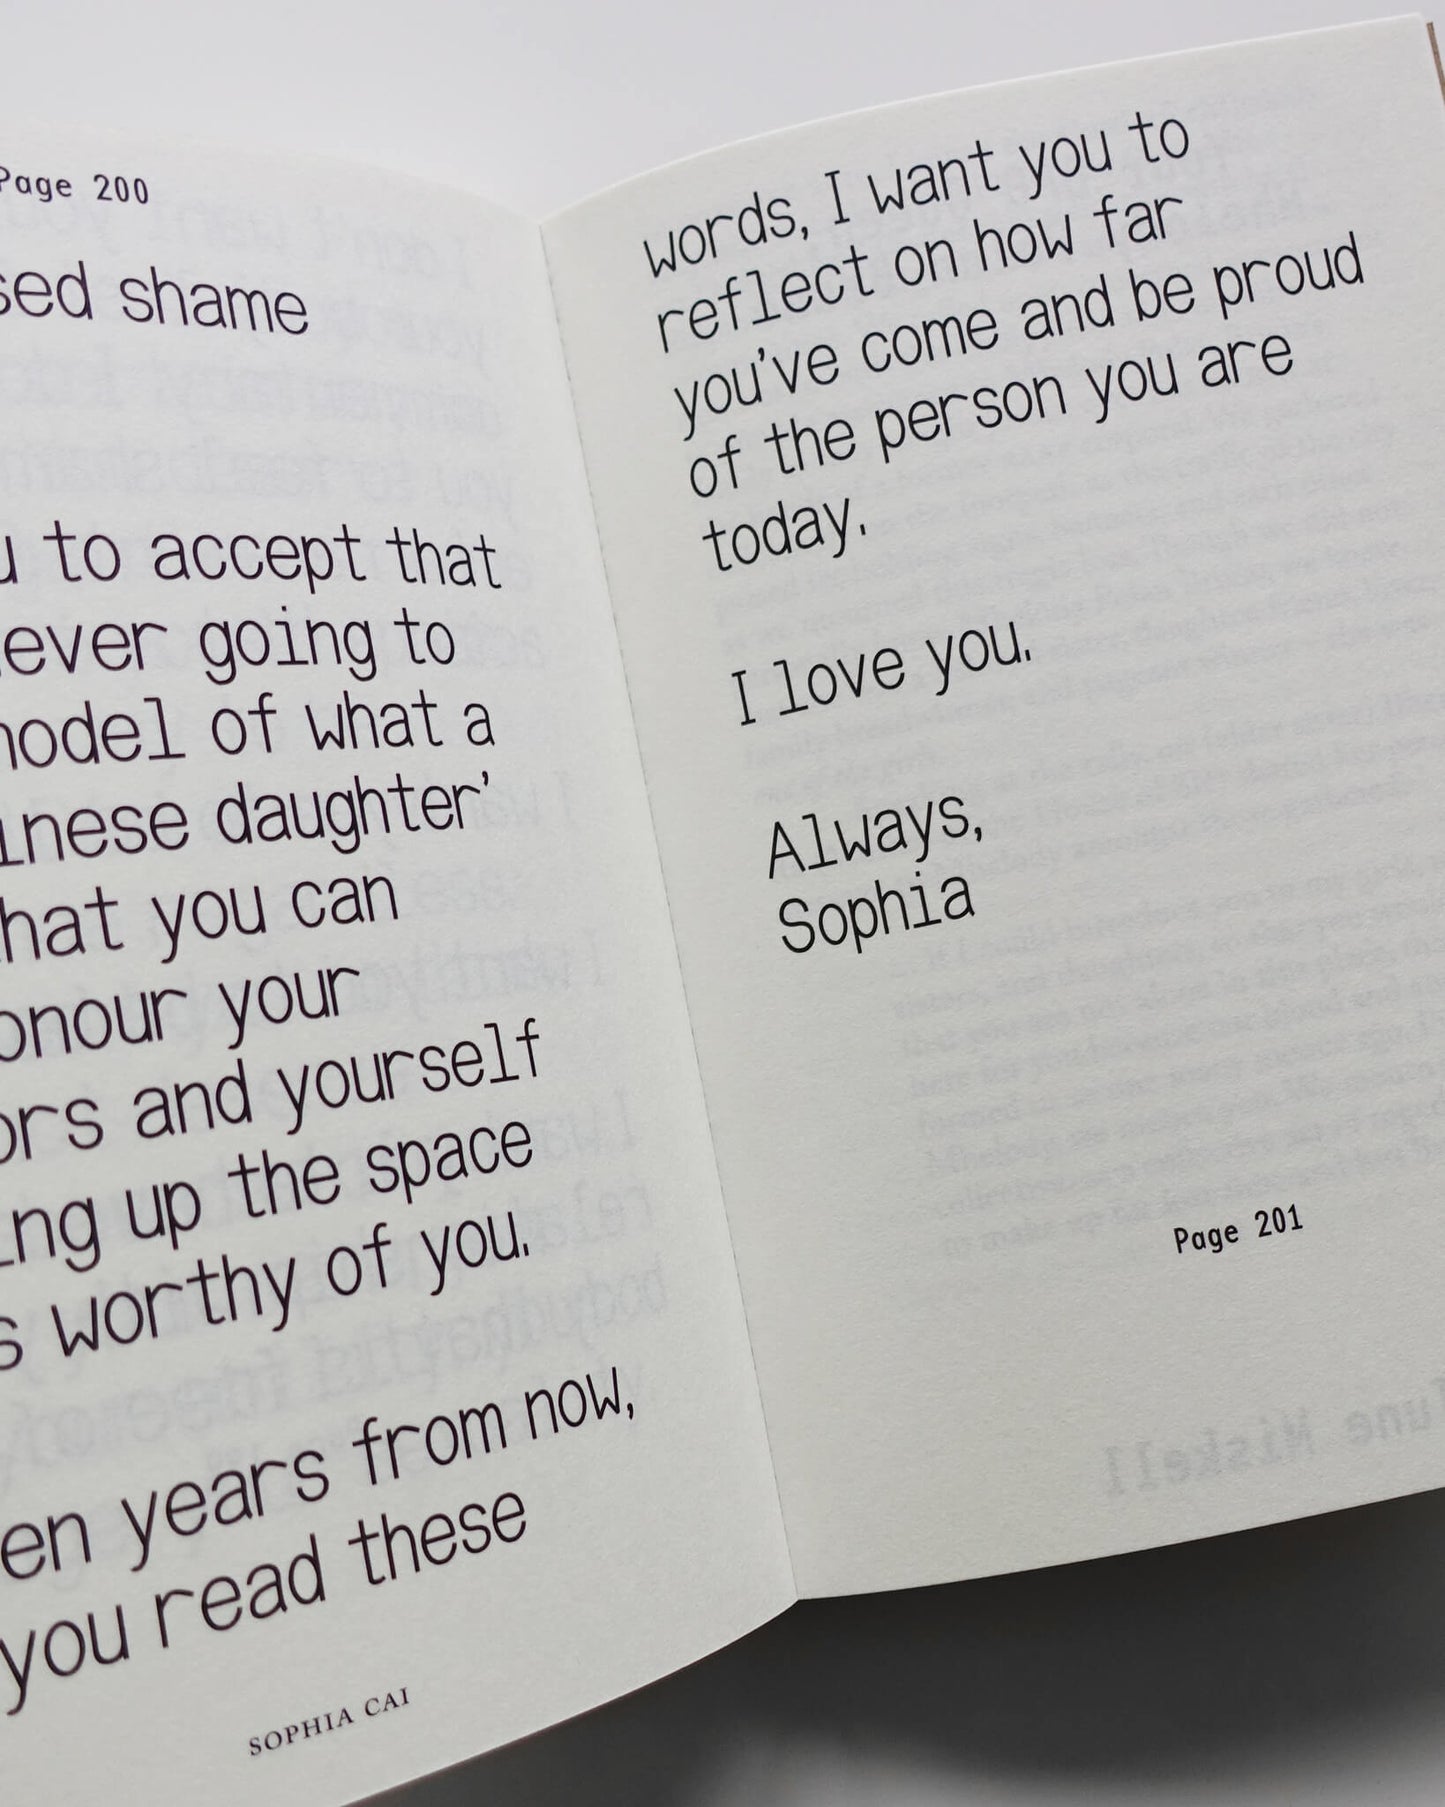 Page 200
shame
to accept that
going to
of what a
daughter'
you can
your
and yourself
up the space
worthy of you.
years from now,
you read these
SOPHIA CAI
words, I want you to
reflect on how far
you've come and be proud
of the person you are
today.
I love you.
Always,
Sophia
Page 201